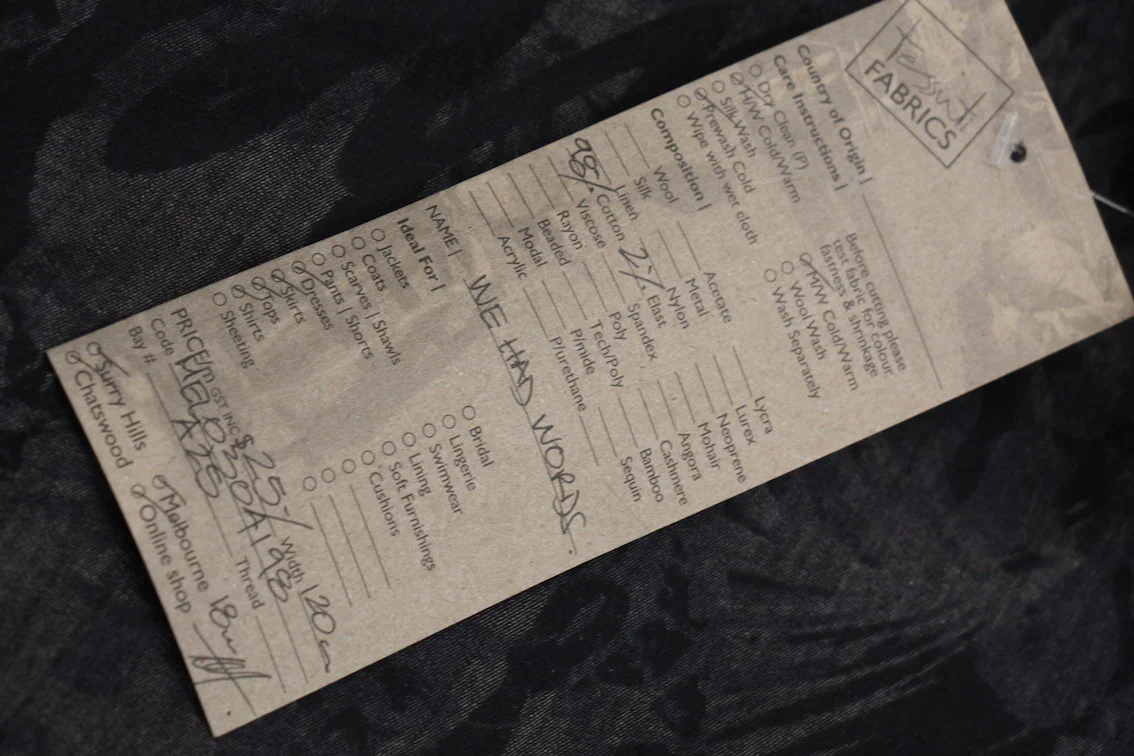 Tessuti
FABRICS
Country of Origin |
Care Instructions |
Dry Clean (P)
H/W Cold/Warm
Silk Wash
Prewash Cold
Wipe with wet cloth
Before cutting please
test fabric for colour
fastness & shrinkage
M/W Cold/Warm
Wool Wash
Wash Separately
Composition |
Wool
Silk
Linen
98% Cotton
Viscose
Rayon
Beaded
Modal
Acrylic
Acetate
Metal
Nylon
2% Elast
Spandex
Poly
Tech/Poly
P/mide
P/urethane
Lycra
Lurex
Neoprene
Mohair
Angora
Cashmere
Bamboo
Sequin
NAME | WE HAD WORDS.
Ideal For |
Jackets
Coats
Scarves | Shawls
Pants | Shorts
Dresses
Skirts
Tops
Shirts
Sheeting
Bridal
Lingerie
Swimwear
Lining
Soft Furnishings
Cushions
PRICE/m GST INC $25-/ Width 120cm
Code
Bay # A26 Thread
Surry Hills
Chatswood
Melbourne
Online shop